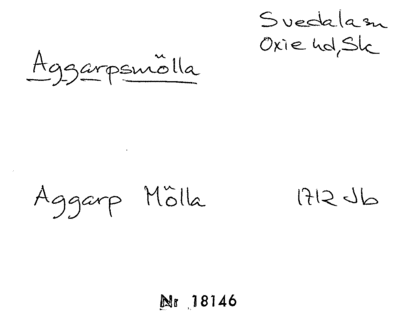 Svedala sn
Oxie hd, Sk
Aggarpsmölla
Aggarp Mölla 1712 Jb
Nr 18146